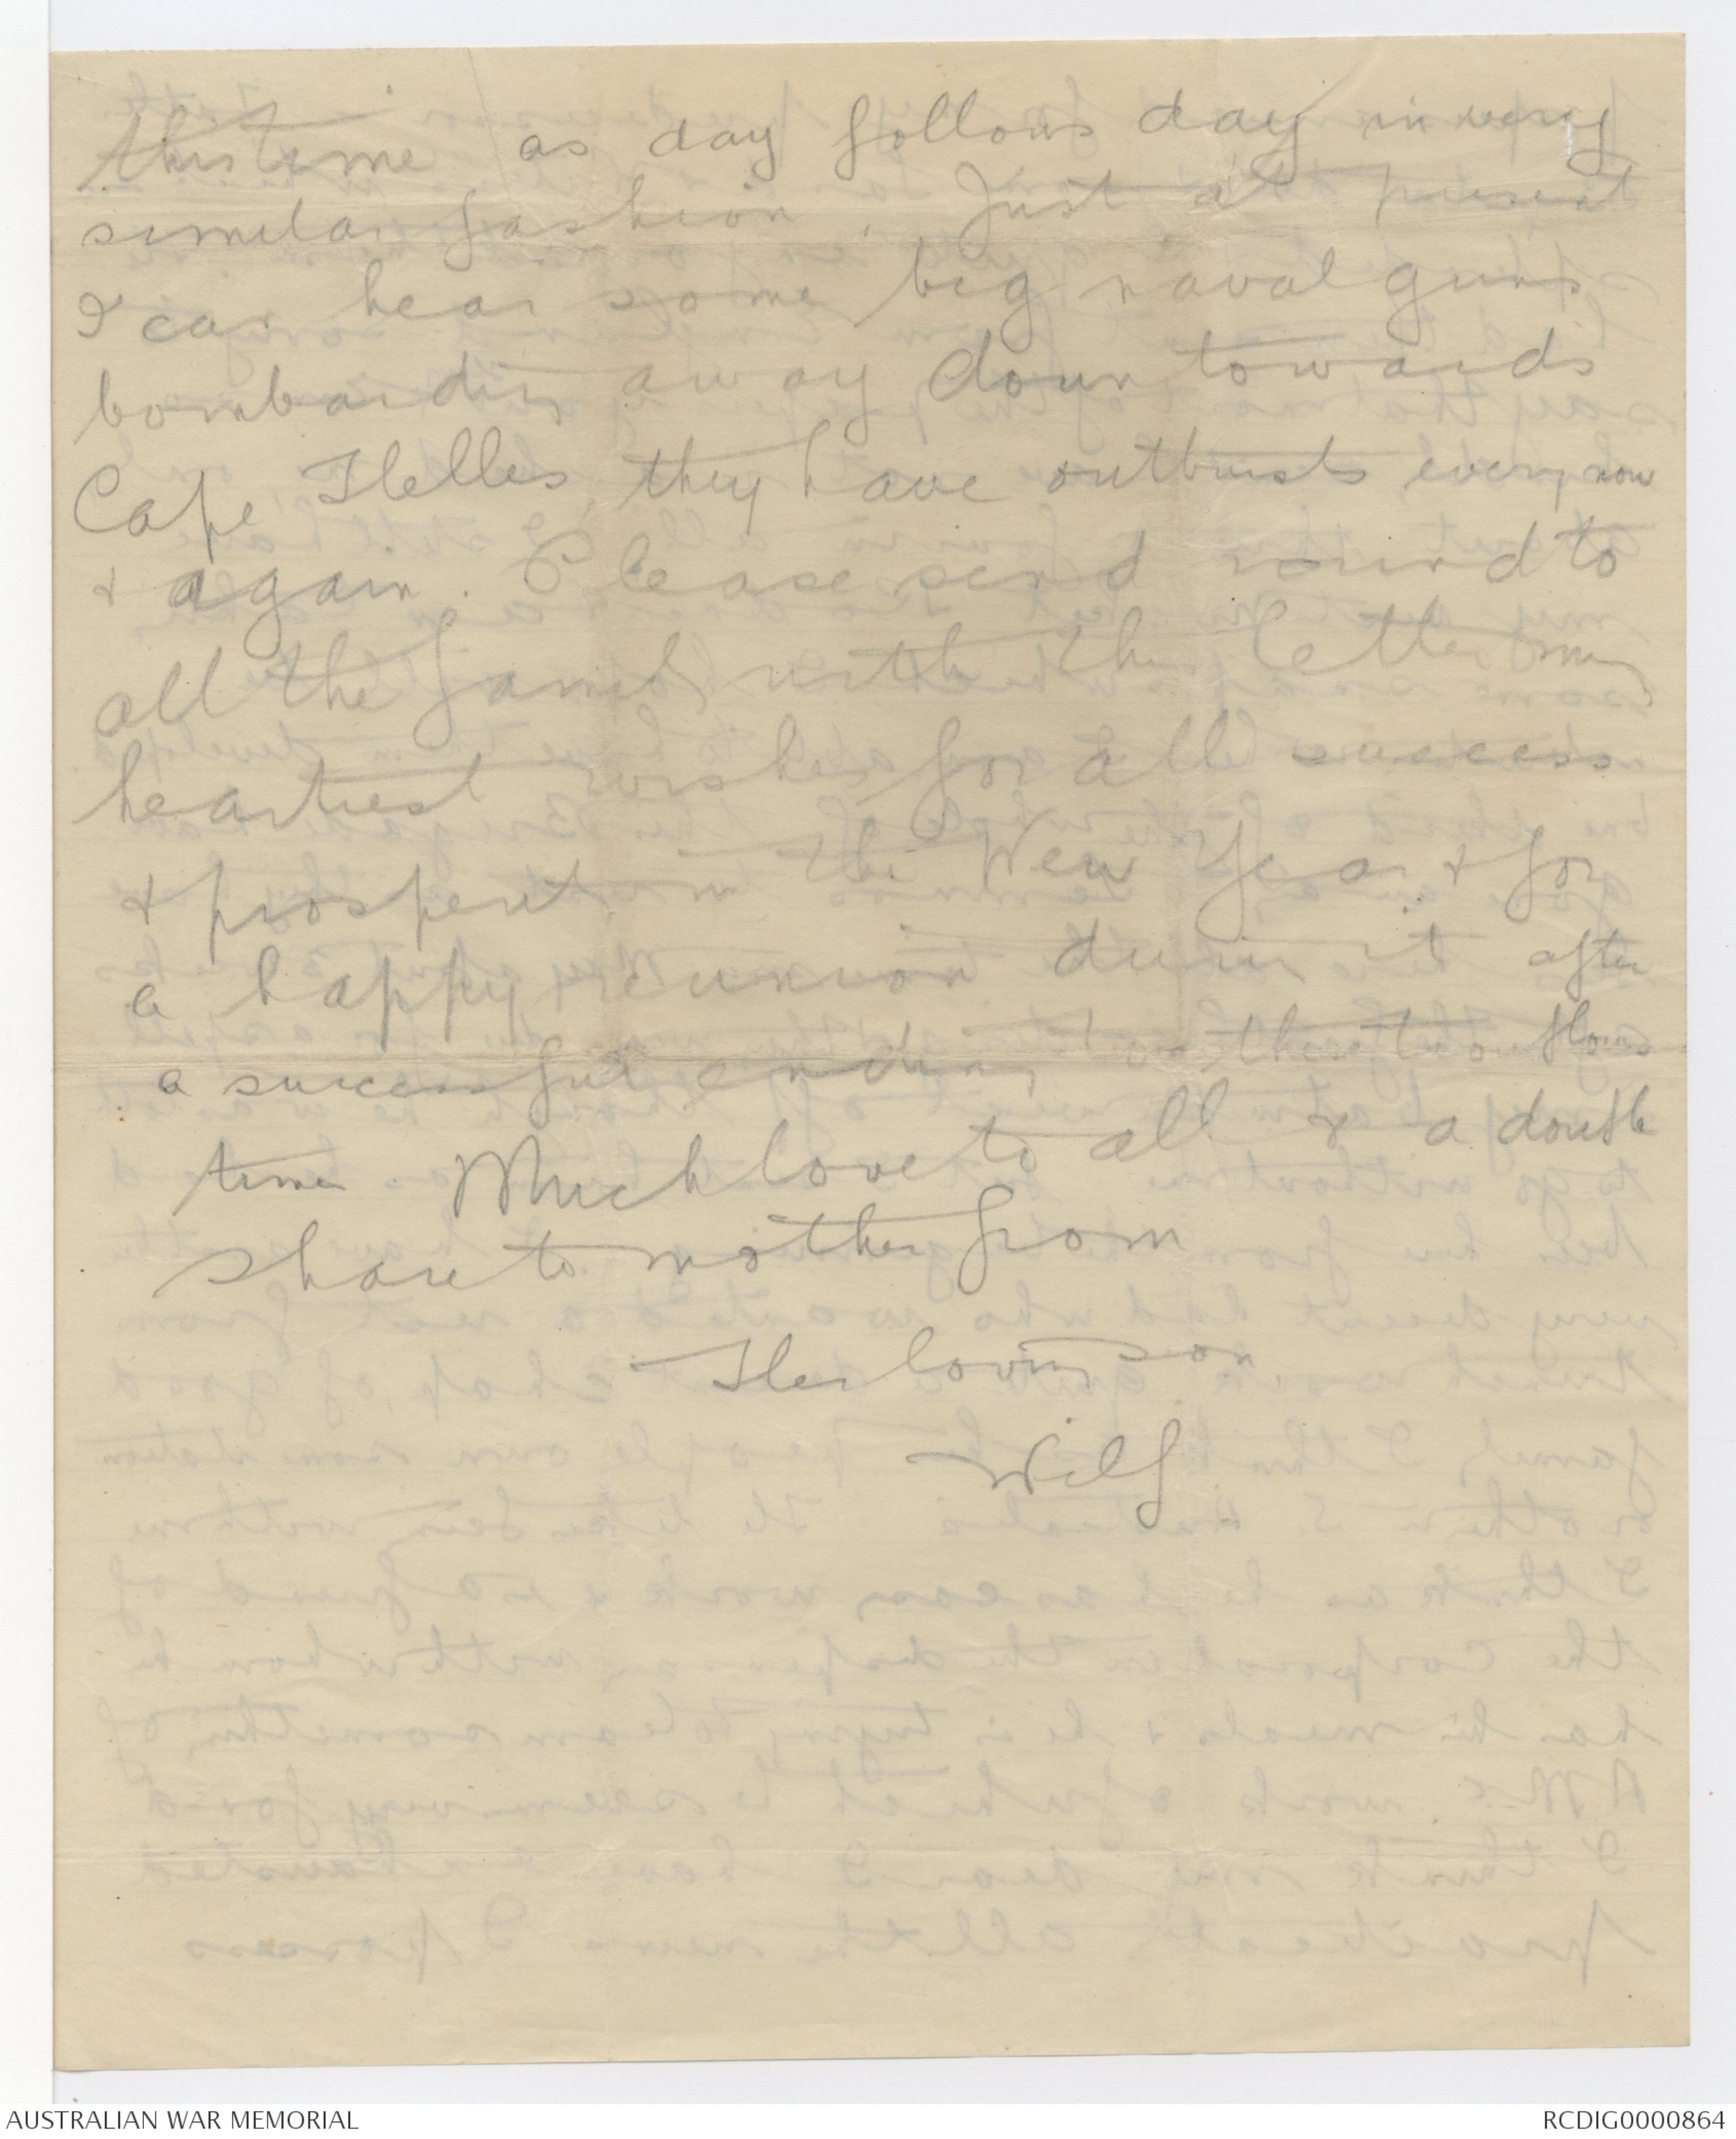 this time as day follows day in very
similar fashion. Just at present
I can hear some big naval guns
bombarding away down towards
Cape Helles, they have outbursts every now
& again. Please send round to
all the family with this letter my
heartiest wishes for all success
& prosperity in the New Year & for
a happy reunion during it after
a successful ending to these troublous
times Much love to all & a double
share to mother from
Her loving son
Wilf.
AUSTRALIAN WAR MEMORIAL
RCDIG0000864